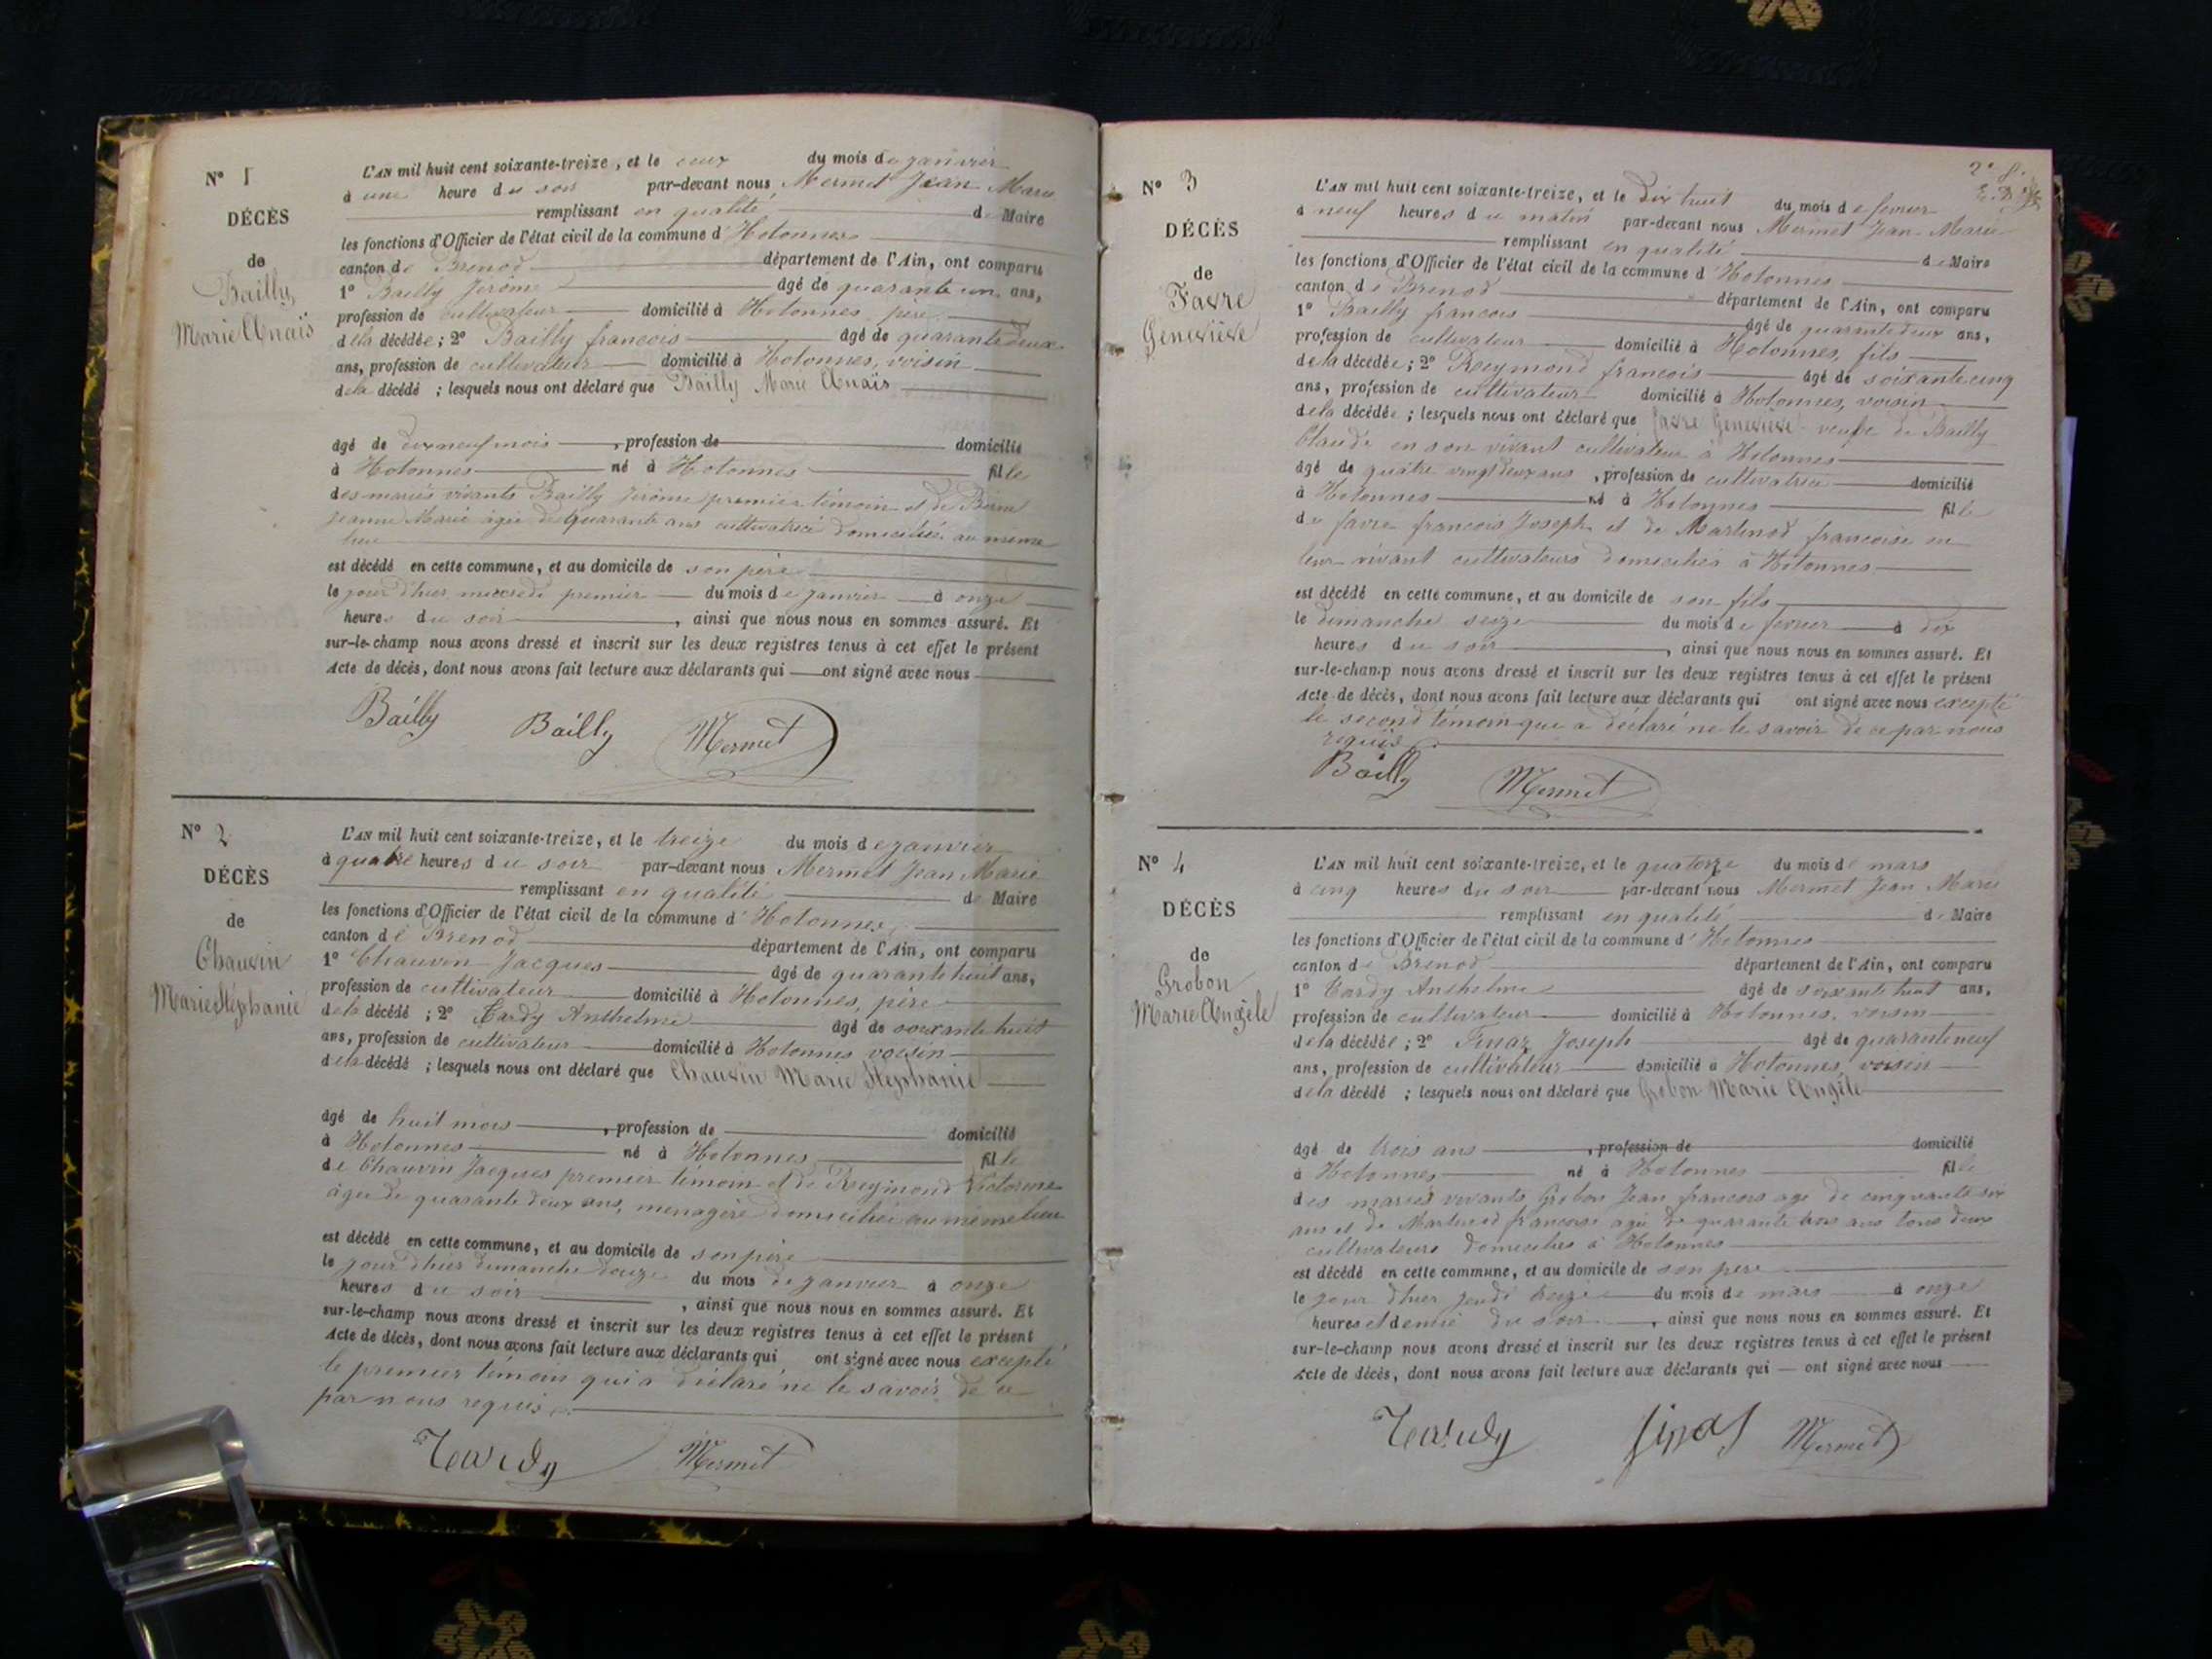 N° 1
DÉCÈS
de
Bailly
Marie Anaïs
L'AN mil huit cent soixante-treize, et le deux du mois de janvier
à une heure du soir par-devant nous Mermet Jean Marie
remplissant en qualité de Maire
les fonctions d'Officier de l'état civil de la commune d'Hotonnes
canton de Brenod département de l'Ain, ont comparu
1° Bailly Jérôme âgé de quarante un ans,
profession de cultivateur domicilié à Hotonnes, père
de la décédée; 2° Bailly françois âgé de quarante deux
ans, profession de cultivateur domicilié à Hotonnes, voisin
de la décédé ; lesquels nous ont déclaré que Bailly Marie Anaïs
âgé de dix neuf mois, profession de domicilié
à Hotonnes né à Hotonnes fille
des mariés vivants Bailly Jérôme premier témoin et de
Jeanne Marie âgée de quarante ans cultivatrice domiciliée au même
lieu
est décédé en cette commune, et au domicile de son père
le jour d'hier mercredi premier du mois de janvier à onze
heures du soir, ainsi que nous nous en sommes assuré. Et
sur-le-champ nous avons dressé et inscrit sur les deux registres tenus à cet effet le présent
Acte de décès, dont nous avons fait lecture aux déclarants qui ont signé avec nous
Bailly Bailly Mermet
N° 2
DÉCÈS
de
Chauvin
Marie Stéphanie
L'AN mil huit cent soixante-treize, et le treize du mois de janvier
à quatre heures du soir par-devant nous Mermet Jean Marie
remplissant en qualité de Maire
les fonctions d'Officier de l'état civil de la commune d'Hotonnes
canton de Brenod département de l'Ain, ont comparu
1° Chauvin Jacques âgé de quarante huit ans,
profession de cultivateur domicilié à Hotonnes, père
de la décédé ; 2° Tardy Anthelme âgé de soixante huit
ans, profession de cultivateur domicilié à Hotonnes voisin
de la décédé ; lesquels nous ont déclaré que Chauvin Marie Stéphanie
âgé de huit mois, profession de domicilié
à Hotonnes né à Hotonnes fille
de Chauvin Jacques premier témoin et de Reymond Victorine
âgée de quarante deux ans, ménagère domiciliée au même lieu
est décédé en cette commune, et au domicile de son père
le jour d'hier dimanche douze du mois de janvier à onze
heures du soir, ainsi que nous nous en sommes assuré. Et
sur-le-champ nous avons dressé et inscrit sur les deux registres tenus à cet effet le présent
Acte de décès, dont nous avons fait lecture aux déclarants qui ont signé avec nous excepté
le premier témoin qui a déclaré ne le savoir de ce
par nous requis
Tardy Mermet
2e f.
N° 3
DÉCÈS
de
Favre
Geneviève
L'AN mil huit cent soixante-treize, et le dix huit du mois de fevrier
à neuf heures du matin par-devant nous Mermet Jean-Marie
remplissant en qualité de Maire
les fonctions d'Officier de l'état civil de la commune d'Hotonnes
canton de Brenod département de l'Ain, ont comparu
1° Bailly françois âgé de quarante deux ans,
profession de cultivateur domicilié à Hotonnes, fils
de la décédée; 2° Reymond françois âgé de soixante cinq
ans, profession de cultivateur domicilié à Hotonnes, voisin
de la décédée ; lesquels nous ont déclaré que favre Geneviève veuve de Bailly
Claude en son vivant cultivateur à Hotonnes
âgé de quatre vingt deux ans, profession de cultivatrice domicilié
à Hotonnes né à Hotonnes fille
de favre françois Joseph et de Martinod françoise en
leur vivant cultivateurs domiciliés à Hotonnes
est décédé en cette commune, et au domicile de son fils
le dimanche seize du mois de fevrier à dix
heures du soir, ainsi que nous nous en sommes assuré. Et
sur-le-champ nous avons dressé et inscrit sur les deux registres tenus à cet effet le présent
Acte de décès, dont nous avons fait lecture aux déclarants qui ont signé avec nous excepté
le second témoin que a déclaré ne le savoir de ce par nous
requis
Bailly Mermet
N° 4
DÉCÈS
de
Grobon
Marie Angèle
L'AN mil huit cent soixante-treize, et le quatorze du mois de mars
à cinq heures du soir par-devant nous Mermet Jean Marie
remplissant en qualité de Maire
les fonctions d'Officier de l'état civil de la commune d'Hotonnes
canton de Brenod département de l'Ain, ont comparu
1° Tardy Anthelme âgé de soixante huit ans,
profession de cultivateur domicilié à Hotonnes, voisin
de la décédée ; 2° Finaz Joseph âgé de quarante neuf
ans, profession de cultivateur domicilié à Hotonnes, voisin
de la décédé ; lesquels nous ont déclaré que Grobon Marie Angèle
âgé de trois ans, profession de domicilié
à Hotonnes né à Hotonnes fille
des mariés vivants Grobon Jean françois age de cinquante six
ans et de Martinod françoise agée de quarante trois ans tous deux
cultivateurs domiciliés à Hotonnes
est décédé en cette commune, et au domicile de son pere
le jour d'hier jeudi treize du mois de mars à onze
heures et demie du soir, ainsi que nous nous en sommes assuré. Et
sur-le-champ nous avons dressé et inscrit sur les deux registres tenus à cet effet le présent
Acte de décès, dont nous avons fait lecture aux déclarants qui ont signé avec nous
Tardy finas Mermet